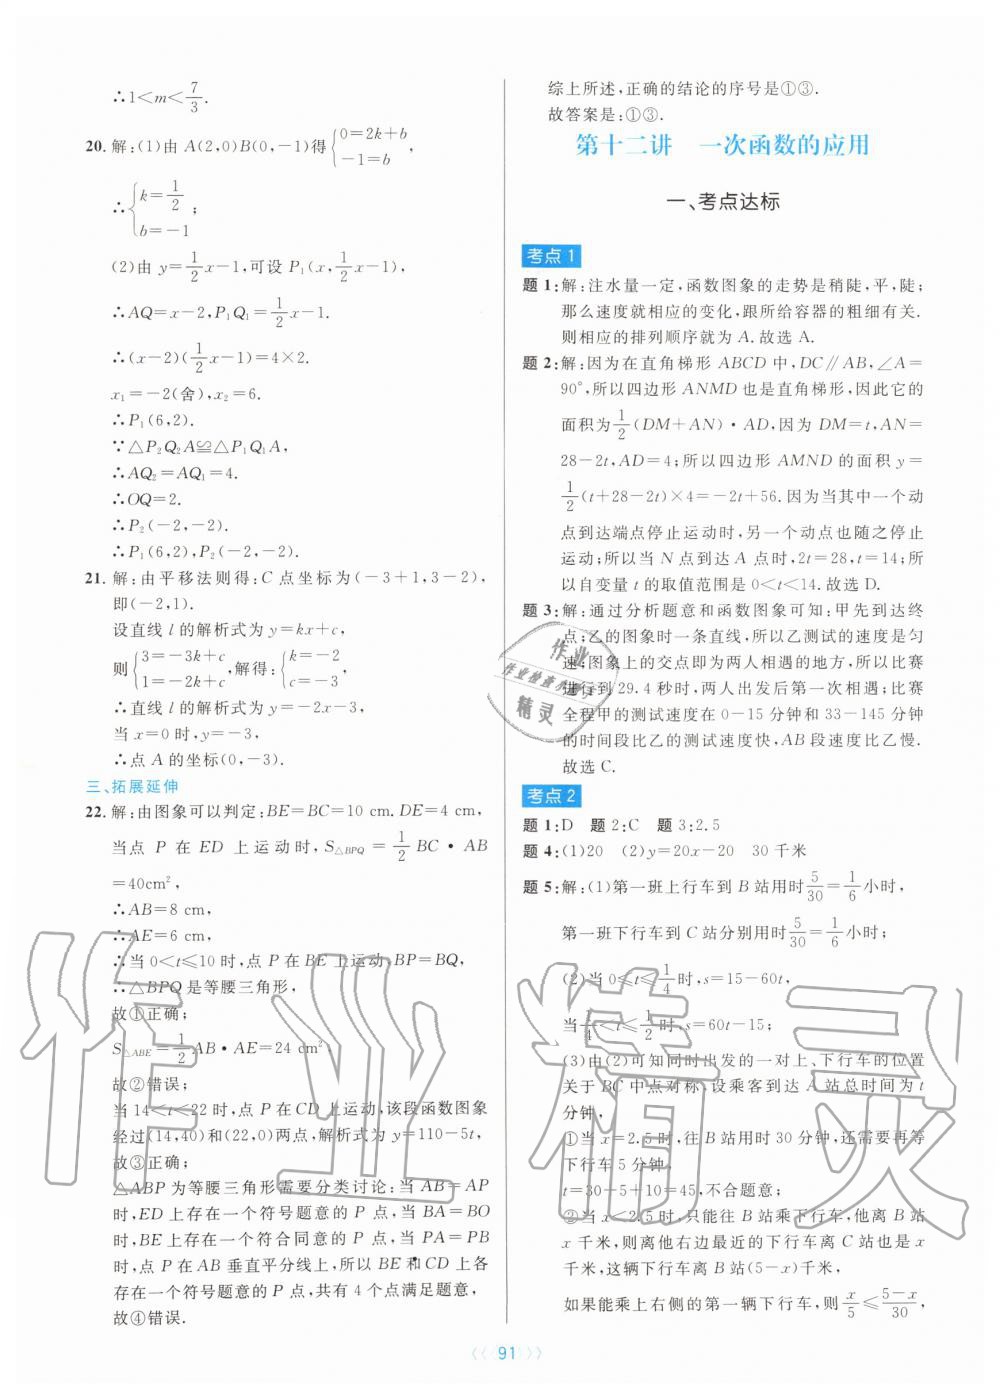 ∴1＜m＜7/3.
20. 解:(1)由 A(2,0)B(0,−1)得{0=2k+b
−1=b,
∴{k=1/2
b=−1;
(2)由 y=1/2x−1,可设 P₁(x,1/2x−1),
∴AQ=x−2,P₁Q₁=1/2x−1.
∴(x−2)(1/2x−1)=4×2.
x₁=−2(舍),x₂=6.
∴P₁(6,2).
∵△P₂Q₂A≌△P₁Q₁A.
∴AQ₂=AQ₁=4.
∴OQ=2.
∴P₂(−2,−2).
∴P₁(6,2),P₂(−2,−2).
21. 解:由平移法则得:C 点坐标为(−3+1,3−2),
即(−2,1).
设直线 l 的解析式为 y=kx+c,
则{3=−3k+c
1=−2k+c,解得:{k=−2
c=−3,
∴直线 l 的解析式为 y=−2x−3,
当 x=0 时,y=−3,
∴点 A 的坐标(0,−3).
三、拓展延伸
22. 解:由图象可以判定:BE=BC=10 cm. DE=4 cm,
当点 P 在 ED 上运动时,S△BPQ=1/2 BC·AB
=40cm²,
∴AB=8 cm,
∴AE=6 cm,
∴当 0＜t≤10 时,点 P 在 BE 上运动,BP=BQ,
∴△BPQ 是等腰三角形,
故①正确;
S△ABE=1/2AB·AE=24 cm²,
故②错误;
当 14＜t＜22 时,点 P 在 CD 上运动,该段函数图象
经过(14,40)和(22,0)两点,解析式为 y=110−5t,
故③正确;
△ABP 为等腰三角形需要分类讨论:当 AB=AP
时,ED 上存在一个符号题意的 P 点,当 BA=BO
时,BE 上存在一个符合同意的 P 点,当 PA=PB
时,点 P 在 AB 垂直平分线上,所以 BE 和 CD 上各
存在一个符号题意的 P 点,共有 4 个点满足题意,
故④错误.
综上所述,正确的结论的序号是①③.
故答案是:①③.
第十二讲 一次函数的应用
一、考点达标
考点 1
题 1:解:注水量一定,函数图象的走势是稍陡,平,陡;
那么速度就相应的变化,跟所给容器的粗细有关.
则相应的排列顺序就为 A. 故选 A.
题 2:解:因为在直角梯形 ABCD 中,DC∥AB,∠A=
90°,所以四边形 ANMD 也是直角梯形,因此它的
面积为1/2(DM+AN)·AD,因为 DM=t,AN=
28−2t,AD=4;所以四边形 AMND 的面积 y=
1/2(t+28−2t)×4=−2t+56. 因为当其中一个动
点到达端点停止运动时,另一个动点也随之停止
运动;所以当 N 点到达 A 点时,2t=28,t=14;所
以自变量 t 的取值范围是 0＜t＜14. 故选 D.
题 3:解:通过分析题意和函数图象可知:甲先到达终
点;乙的函数图象时一条直线,所以乙测试的速度是匀
速;图象上的交点即为两人相遇的地方,所以比赛
进行到 29.4 秒时,两人出发后第一次相遇;比赛
全程甲的测试速度在 0−15 分钟和 33−145 分钟
的时间段比乙的测试速度快,AB 段速度比乙慢.
故选 C.
考点 2
题 1:D 题 2:C 题 3:2.5
题 4:(1)20 (2)y=20x−20 30 千米
题 5:解:(1)第一班上行车到 B 站用时5/30=1/6小时,
第一班下行车到 C 站分别用时5/30=1/6小时;
(2)当 0≤t≤1/4时,s=15−60t,
当1/4＜t≤1/2时,s=60t−15;
(3)由(2)可知同时出发的一对上、下行车的位置
关于 BC 中点对称,设乘客到达 A 站总时间为 t
分钟,
①当 x=2.5 时,往 B 站用时 30 分钟,还需要再等
下行车 5 分钟,
t=30+5+10=45,不合题意;
②当 x＜2.5 时,只能往 B 站乘下行车,他离 B 站
x 千米,则离他右边最近的下行车离 C 站也是 x
千米,这辆下行车离 B 站(5−x)千米,
如果能乘上右侧的第一辆下行车,x/5≤(5−x)/30,
91
作业精灵
作业
作业检查小帮手
精灵